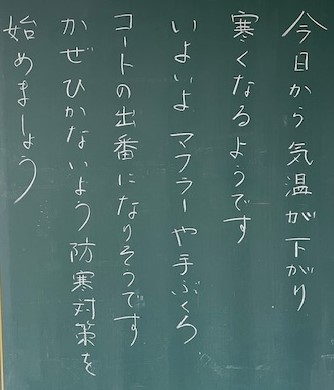 今日から気温が下がり
寒くなるようです
いよいよマフラーや手ぶくろ
コートの出番になりそうです
かぜひかないよう防寒対策を
始めましょう